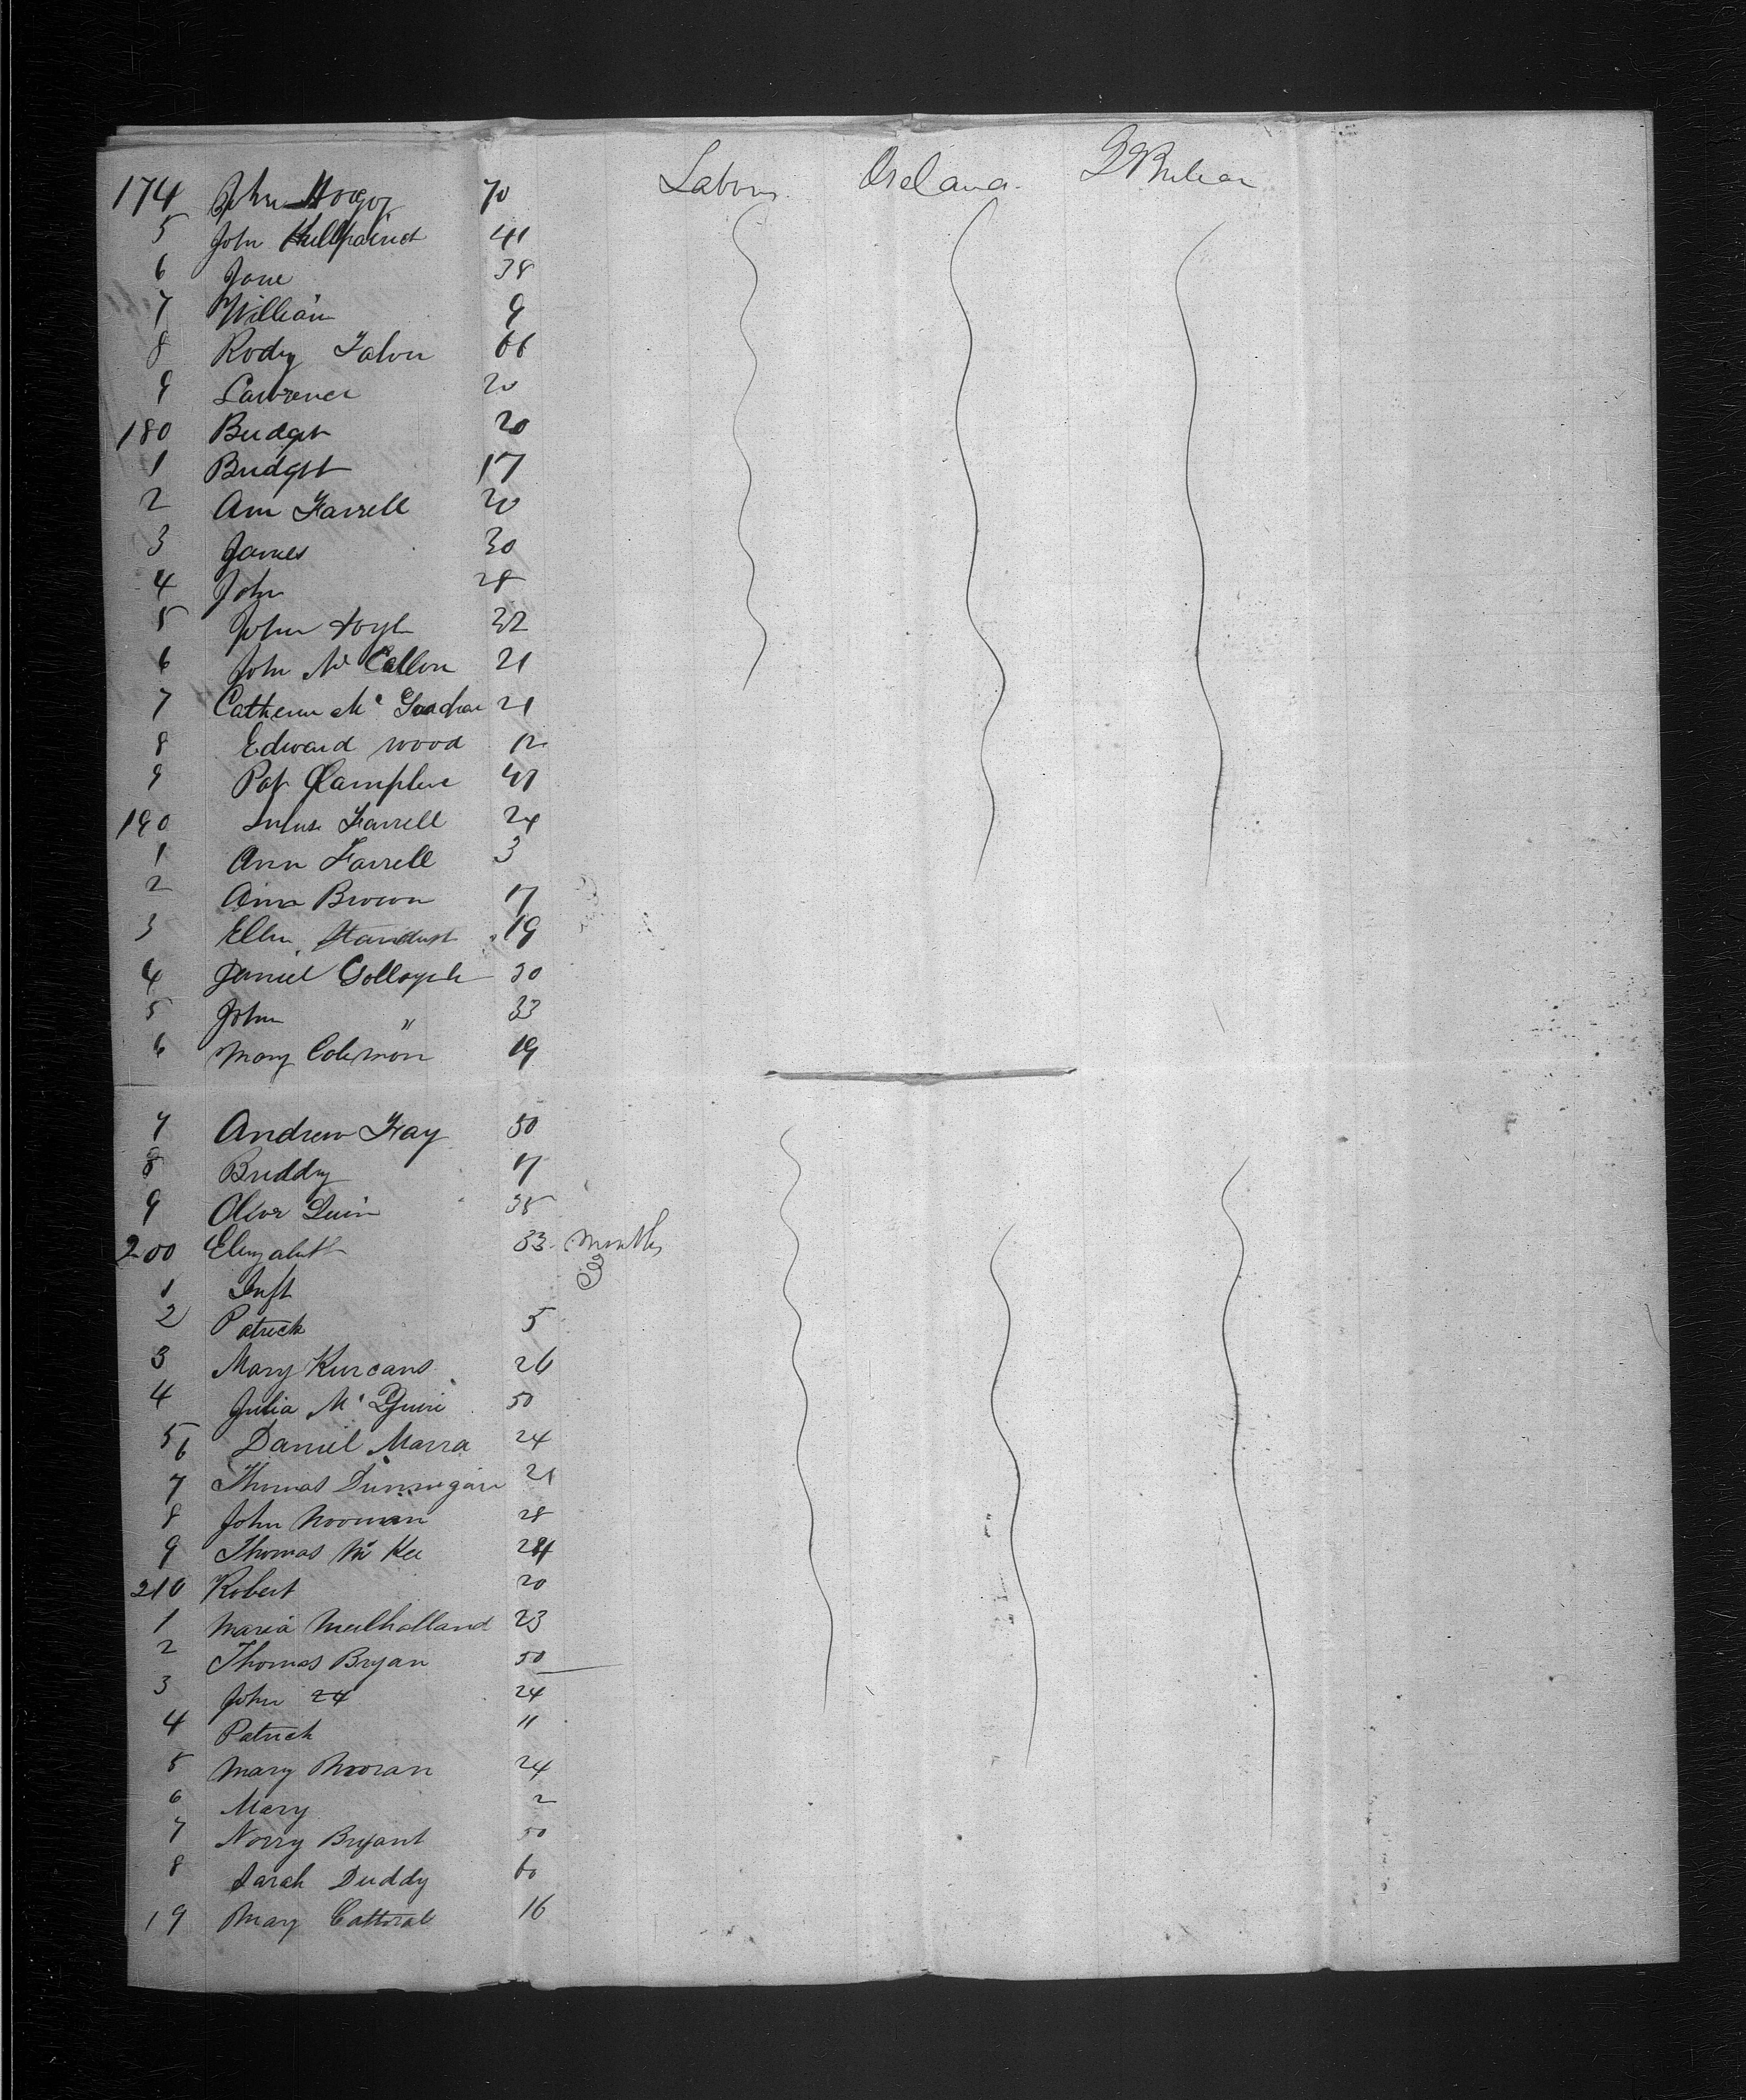 174 John Hogg 70 Labour Ireland
5 John Killpatrick 41
6 Jane 38
7 William 9
8 Rody 66
9 Lawrence 20
180 Bridget 20
1 Bridget 17
2 Ann Farrell 20
3 James 30
4 John 28
5 John 32
6 John Mc Callon 21
7 Catherin Mc 21
8 Edward Wood 12
9 Pat 41
190 Farrell 24
1 Ann Farrell 3
2 Ann Brown 17
3 Ellen 19
4 Daniel 30
5 John " 33
6 Mary Colemon 19
7 Andrew Fay 50
8 Briddy 17
9 Oliver Quin 35
200 Elizabeth 33 months
1 Inft 3
2 Patrick 5
3 Mary 26
4 Julia Mc Guire 50
5 6 Daniel Marra 24
7 Thomas Dunnigan 21
8 John Noonan 28
9 Thomas Mc Kee 24
210 Robert 20
1 Maria Mulholland 23
2 Thomas Bryan 50
3 John 24 24
4 Patrick 11
5 Mary Moran 24
6 Mary 2
7 Norry Bryant 50
8 Sarah Duddy 60
19 Mary Cattoral 16